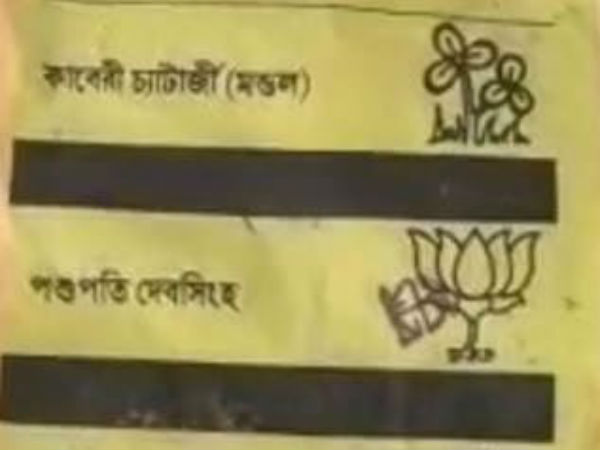 কাবেরী চ্যাটার্জী (মন্ডল)
পশুপতি দেবসিংহ